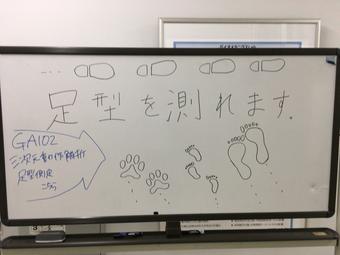 足型を測れます.
GA102
三次元動作解析
足型測定
こちら